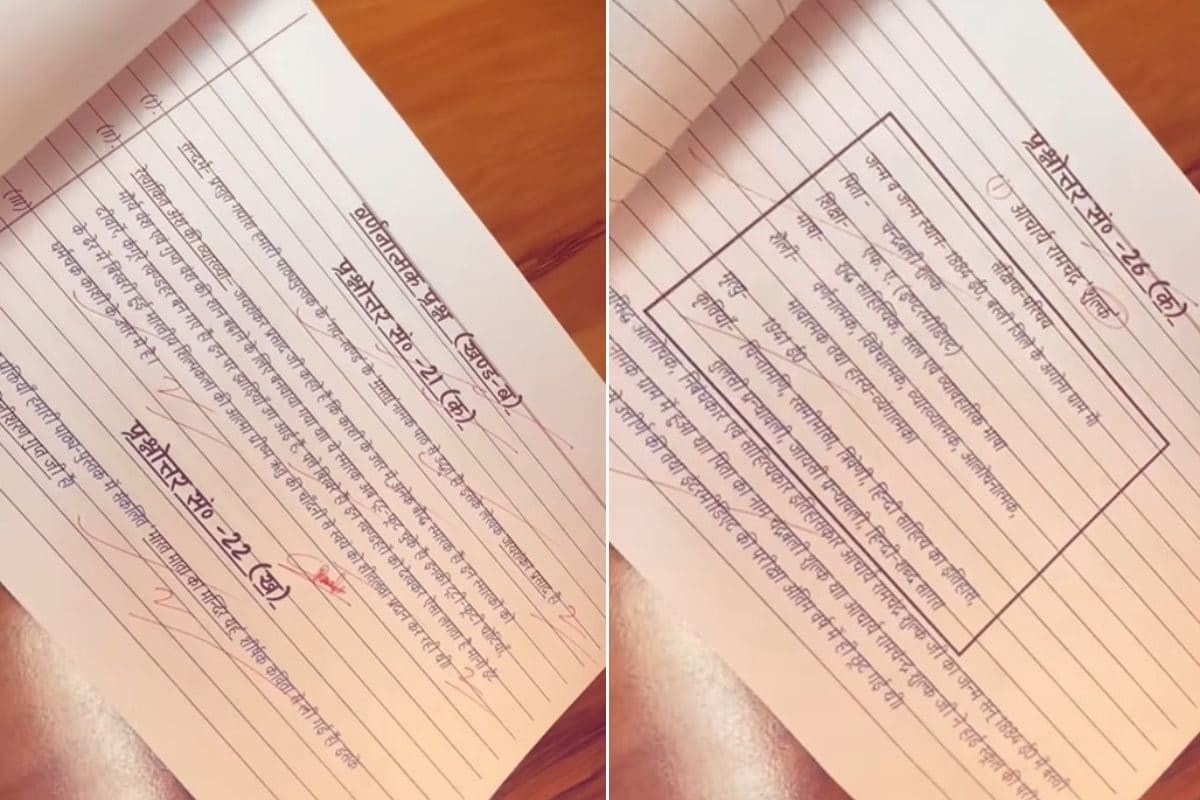 वर्णनात्मक प्रश्न (खण्ड-ब)
प्रश्नोत्तर सं० -21 (क)
(I).
सन्दर्भ- प्रस्तुत गद्यांश हमारी पाठ्यपुस्तक के गद्य-खण्ड के 'ममता' नामक पाठ से उद्धृत है इसके लेखक जयशंकर प्रसाद है
(II).
रेखांकित अंश की व्याख्या:- जयशंकर प्रसाद जी कहते हैं कि काशी के उत्तर में अनेक बौद्ध स्मारक है इन स्मारकों को
मौर्य वंश एवं गुप्त वंश की शान बढ़ाने के लिए बनवाया गया था ये स्मारक अब टूट-फूट चुके है इनकी टूटी फूटी चोटियाँ
दीवारें, कंगूरे खण्डहर बन गए हैं इन पर झाड़ियाँ उग आई है,
के ढेर में बिखरी हुई भारतीय शिल्पकला की आत्मा ग्रीष्म ऋतु की चाँदनी में स्वयं को शीतलता प्रदान कर रही थी
(III)
धर्मचक्र काशी के उत्तर में है।
2
2
2
प्रश्नोत्तर सं० -22 (ख)
पंक्तियाँ हमारी पाठ्य-पुस्तक में संकलित 'भारत माता का मन्दिर यह' शीर्षक कविता से ली गई है इसके
गुप्त जी है
2
प्रश्नोत्तर सं० -26 (क)
(1) आचार्य रामचन्द्र शुक्ल
संक्षिप्त परिचय
जन्म व जन्म स्थान- 1884 ई०, बस्ती जिले के अगोना ग्राम में
पिता - चन्द्रबली शुक्ल
शिक्षा- एफ. ए. (इण्टरमीडिएट)
भाषा- शुद्ध साहित्यिक, सरल एवं व्यावहारिक भाषा
शैली- वर्णनात्मक, विवेचनात्मक, व्याख्यात्मक, आलोचनात्मक,
भावात्मक तथा हास्य व्यंग्यात्मक
मृत्यु- 1941 ई०
कृतियाँ- चिन्तामणि, रसमीमांसा, त्रिवेणी, हिन्दी साहित्य का इतिहास,
तुलसी ग्रन्थावली, जायसी ग्रन्थावली, हिन्दी शब्द सागर
आलोचक, निबन्धकार एवं साहित्यकार इतिहासकार आचार्य रामचन्द्र शुक्ल जी का जन्म सन् 1884 ई० में बस्ती
नामक ग्राम में हुआ था पिता का नाम चन्द्रबली शुक्ल था आचार्य रामचन्द्र शुक्ल जी ने हाई स्कूल की
उत्तीर्ण की तथा इंटरमीडिएट की परीक्षा अंतिम वर्ष में ही छूट गई थी